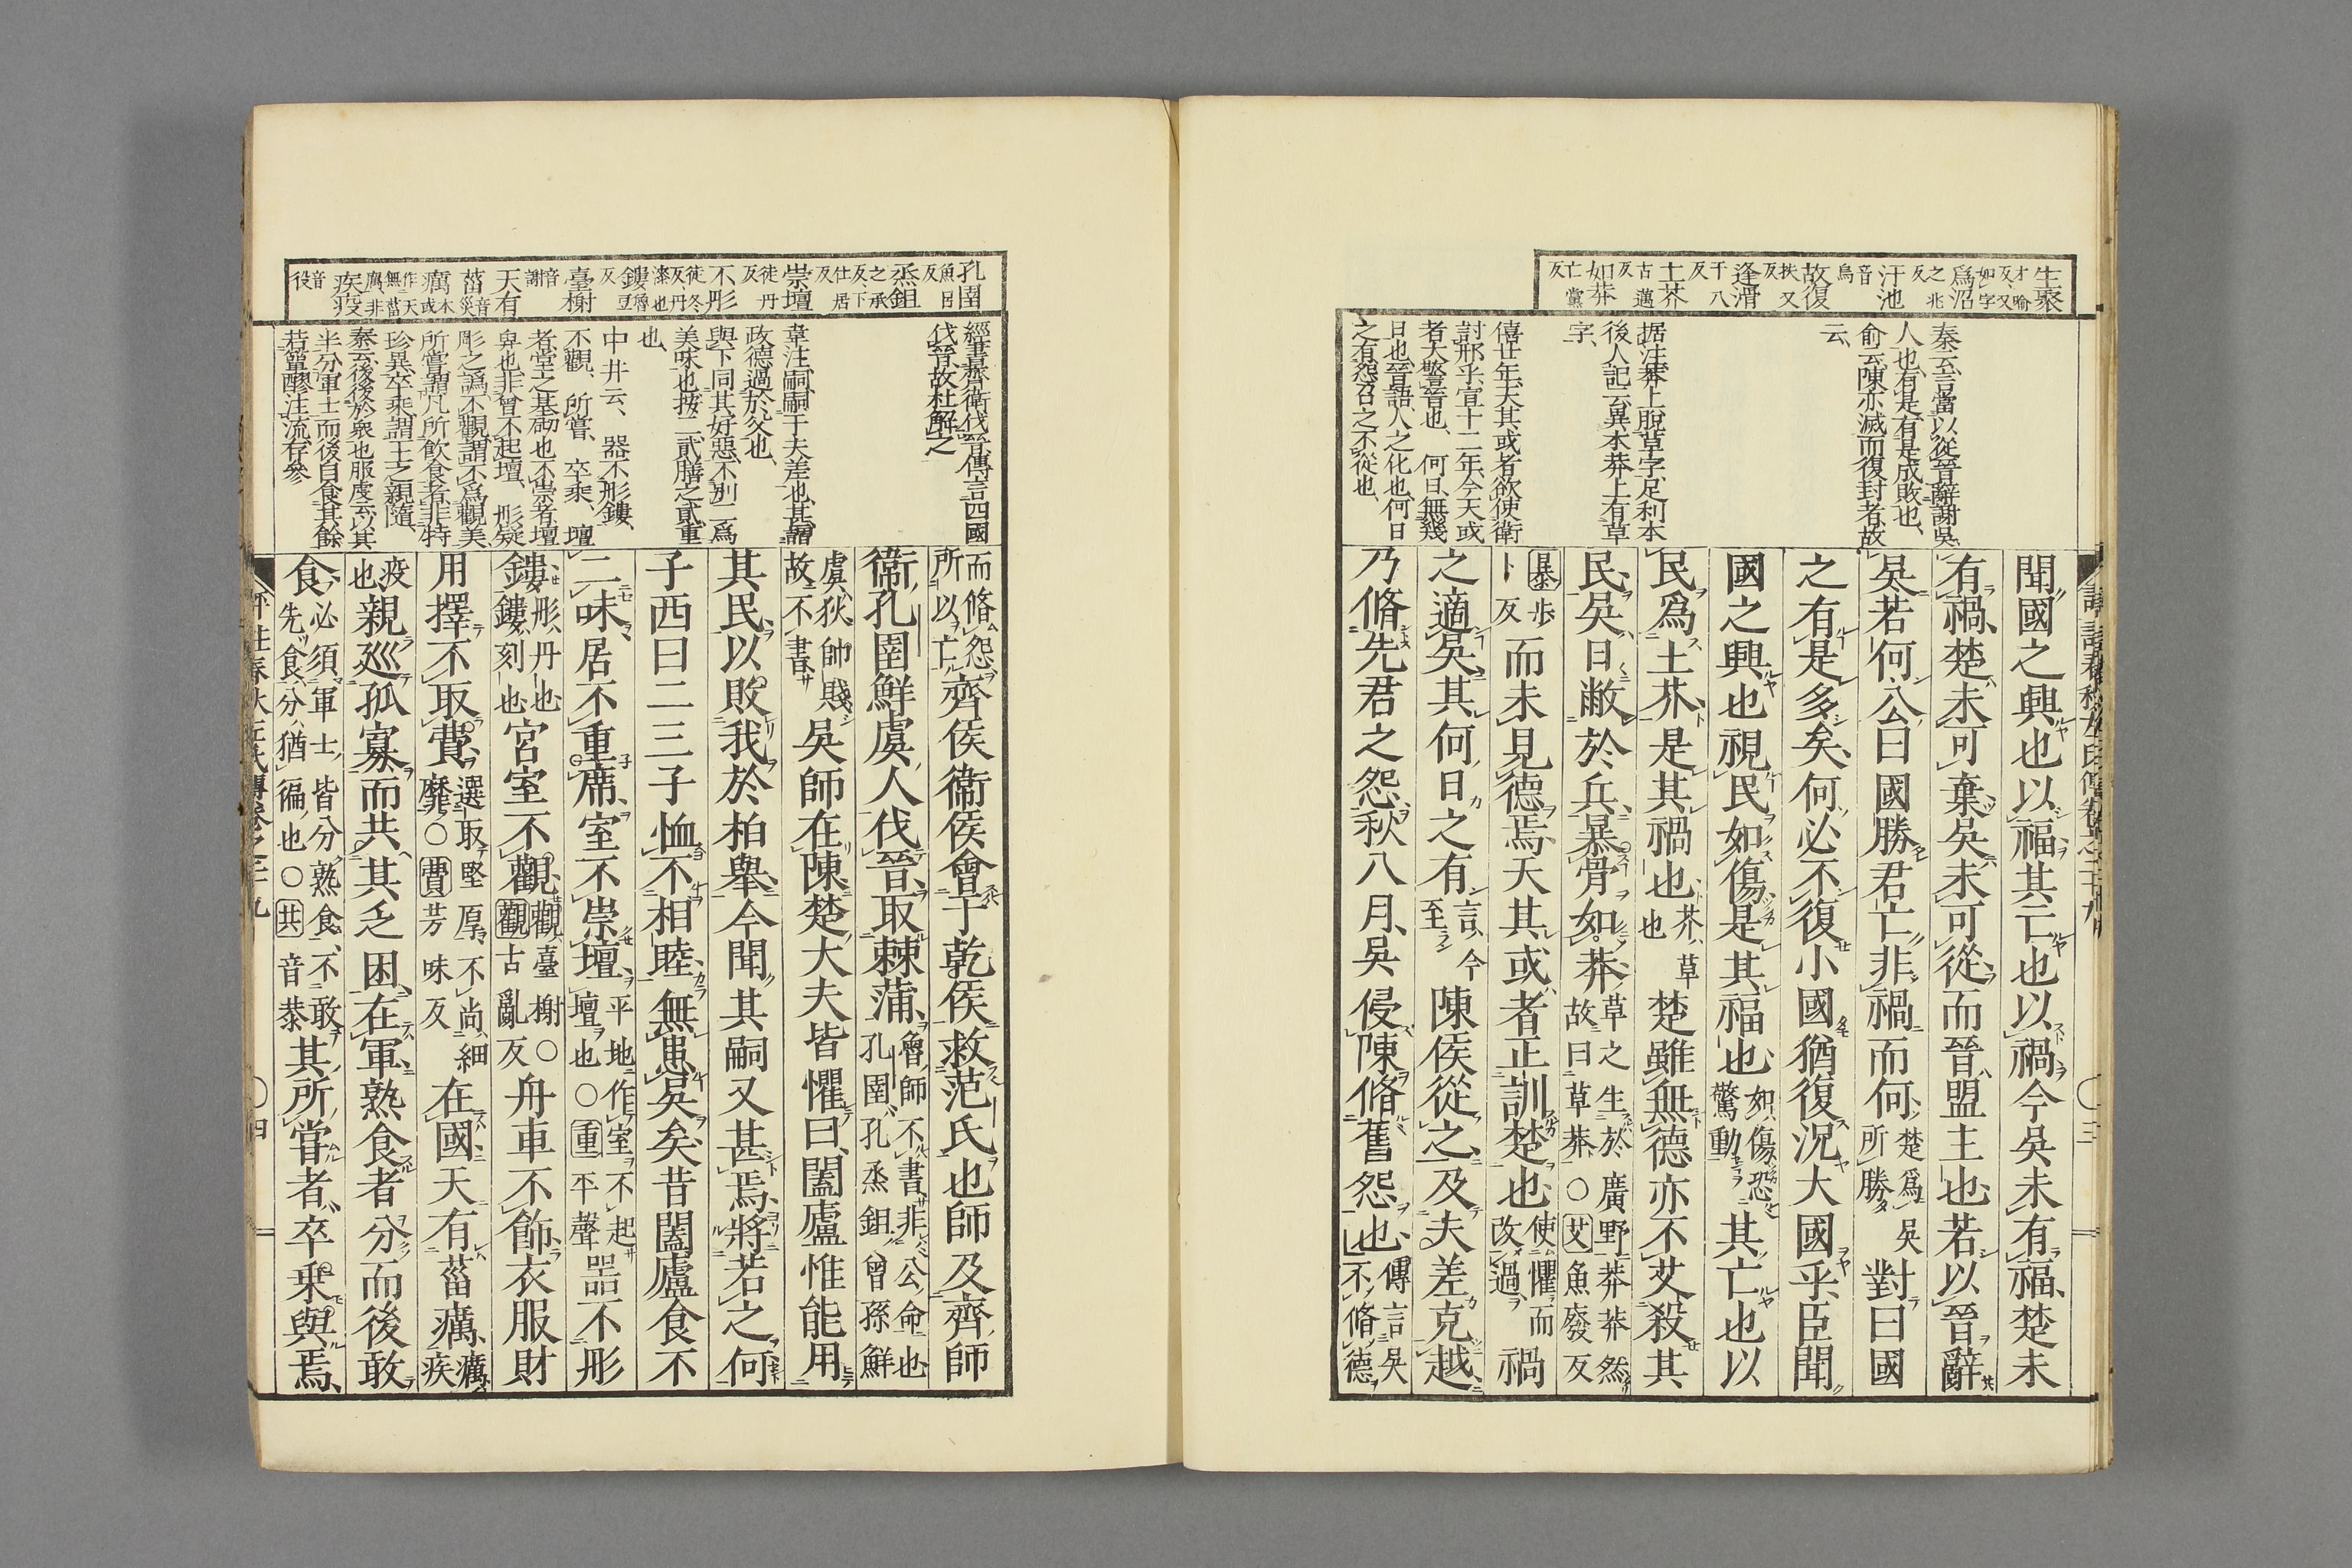 生聚
才喻
反又
如字
爲沼
之兆
反
汙池
音
烏
故復
扶又
反
逢滑
于八
反
土芥
古邁
反
如莽
亡黨
反
秦云、言當以從晉辭謝吳
人也、有是、有是成敗也、
俞云、陳亦滅而復封者、故
云、
据注莽上脫草字、足利本
後人記云、異本莽上有草
字、
僖廿年、天其或者欲使衛
討邢乎、宣十二年、今天或
者大警晉也、何日、無幾
日也、晉語、人之化也、何日
之有、怨召之不從也、
聞國之興也以福其亡也以禍今吳未有福楚未
有禍楚未可棄吳未可從而晉盟主也若以晉辭
吳若何公曰國勝君亡非禍而何楚爲吳
所勝對曰國
之有是多矣何必不復小國猶復況大國乎臣聞
國之興也視民如傷是其福也如傷恐
驚動其亡也以
民爲土芥是其禍也芥草
也楚雖無德亦不艾殺其
民吳日敝於兵暴骨如莽草之生於廣野莽莽然
故曰草莽○艾魚廢反
暴步
卜反而未見德焉天其或者正訓楚也使懼而
改過禍
之適吳其何日之有言今
至陳侯從之及夫差克越
乃脩先君之怨秋八月吳侵陳脩舊怨也傳言吳
不脩德
孔圉
魚呂
反
烝鉏
之承
反下
仕居
反
崇壇
徒丹
反
不彤
徒冬
反丹
漆也
鏤
魯豆
反
臺榭
音
謝
天有
菑
音
災
癘
本或
作天
無菑
癘非
疾疫
音
役
經書齊衛伐晉、傳言四國
伐晉、故杜解之
韋注、嗣嗣子夫差也、甚謂
政德過於父也、
與下同其好惡、不別二爲
美味也、按二貳膳之貳、重
也、
中井云、器不彤鏤、
不觀、所嘗、卒乘、壇
者堂之基砌也、不崇者、壇
卑也、非曾不起壇、彤疑
彫之譌、不觀、謂不爲觀美
所嘗、謂凡所飲食者、非特
珍異、卒乘、謂王之親隨、
秦云、後後於衆也、服虔云、以其
半分軍士、而後自食其餘
若簞醪注流、存參
而脩怨
所以亡齊侯衞侯會于乾侯救范氏也師及齊師
衞孔圉鮮虞人伐晉取棘蒲魯師不書非公命也
孔圉孔烝鉏曾孫鮮
虞狄帥賤
故不書吳師在陳楚大夫皆懼曰闔廬惟能用
其民以敗我於柏舉今聞其嗣又甚焉將若之何
子西曰二三子恤不相睦無患吳矣昔闔廬食不
二味居不重席室不崇壇平地作室不起
壇也○重平聲器不彤
鏤彤丹也
鏤刻也宮室不觀觀臺榭○
觀古亂反舟車不飾衣服財
用擇不取費選取堅厚不尚細
靡○費芳味反在國天有菑癘癘
疾
疫
也親巡孤寡而共其乏困在軍熟食者分而後敢
食必須軍士皆分熟食不敢
先食分猶徧也○共音恭其所嘗者卒乘與焉